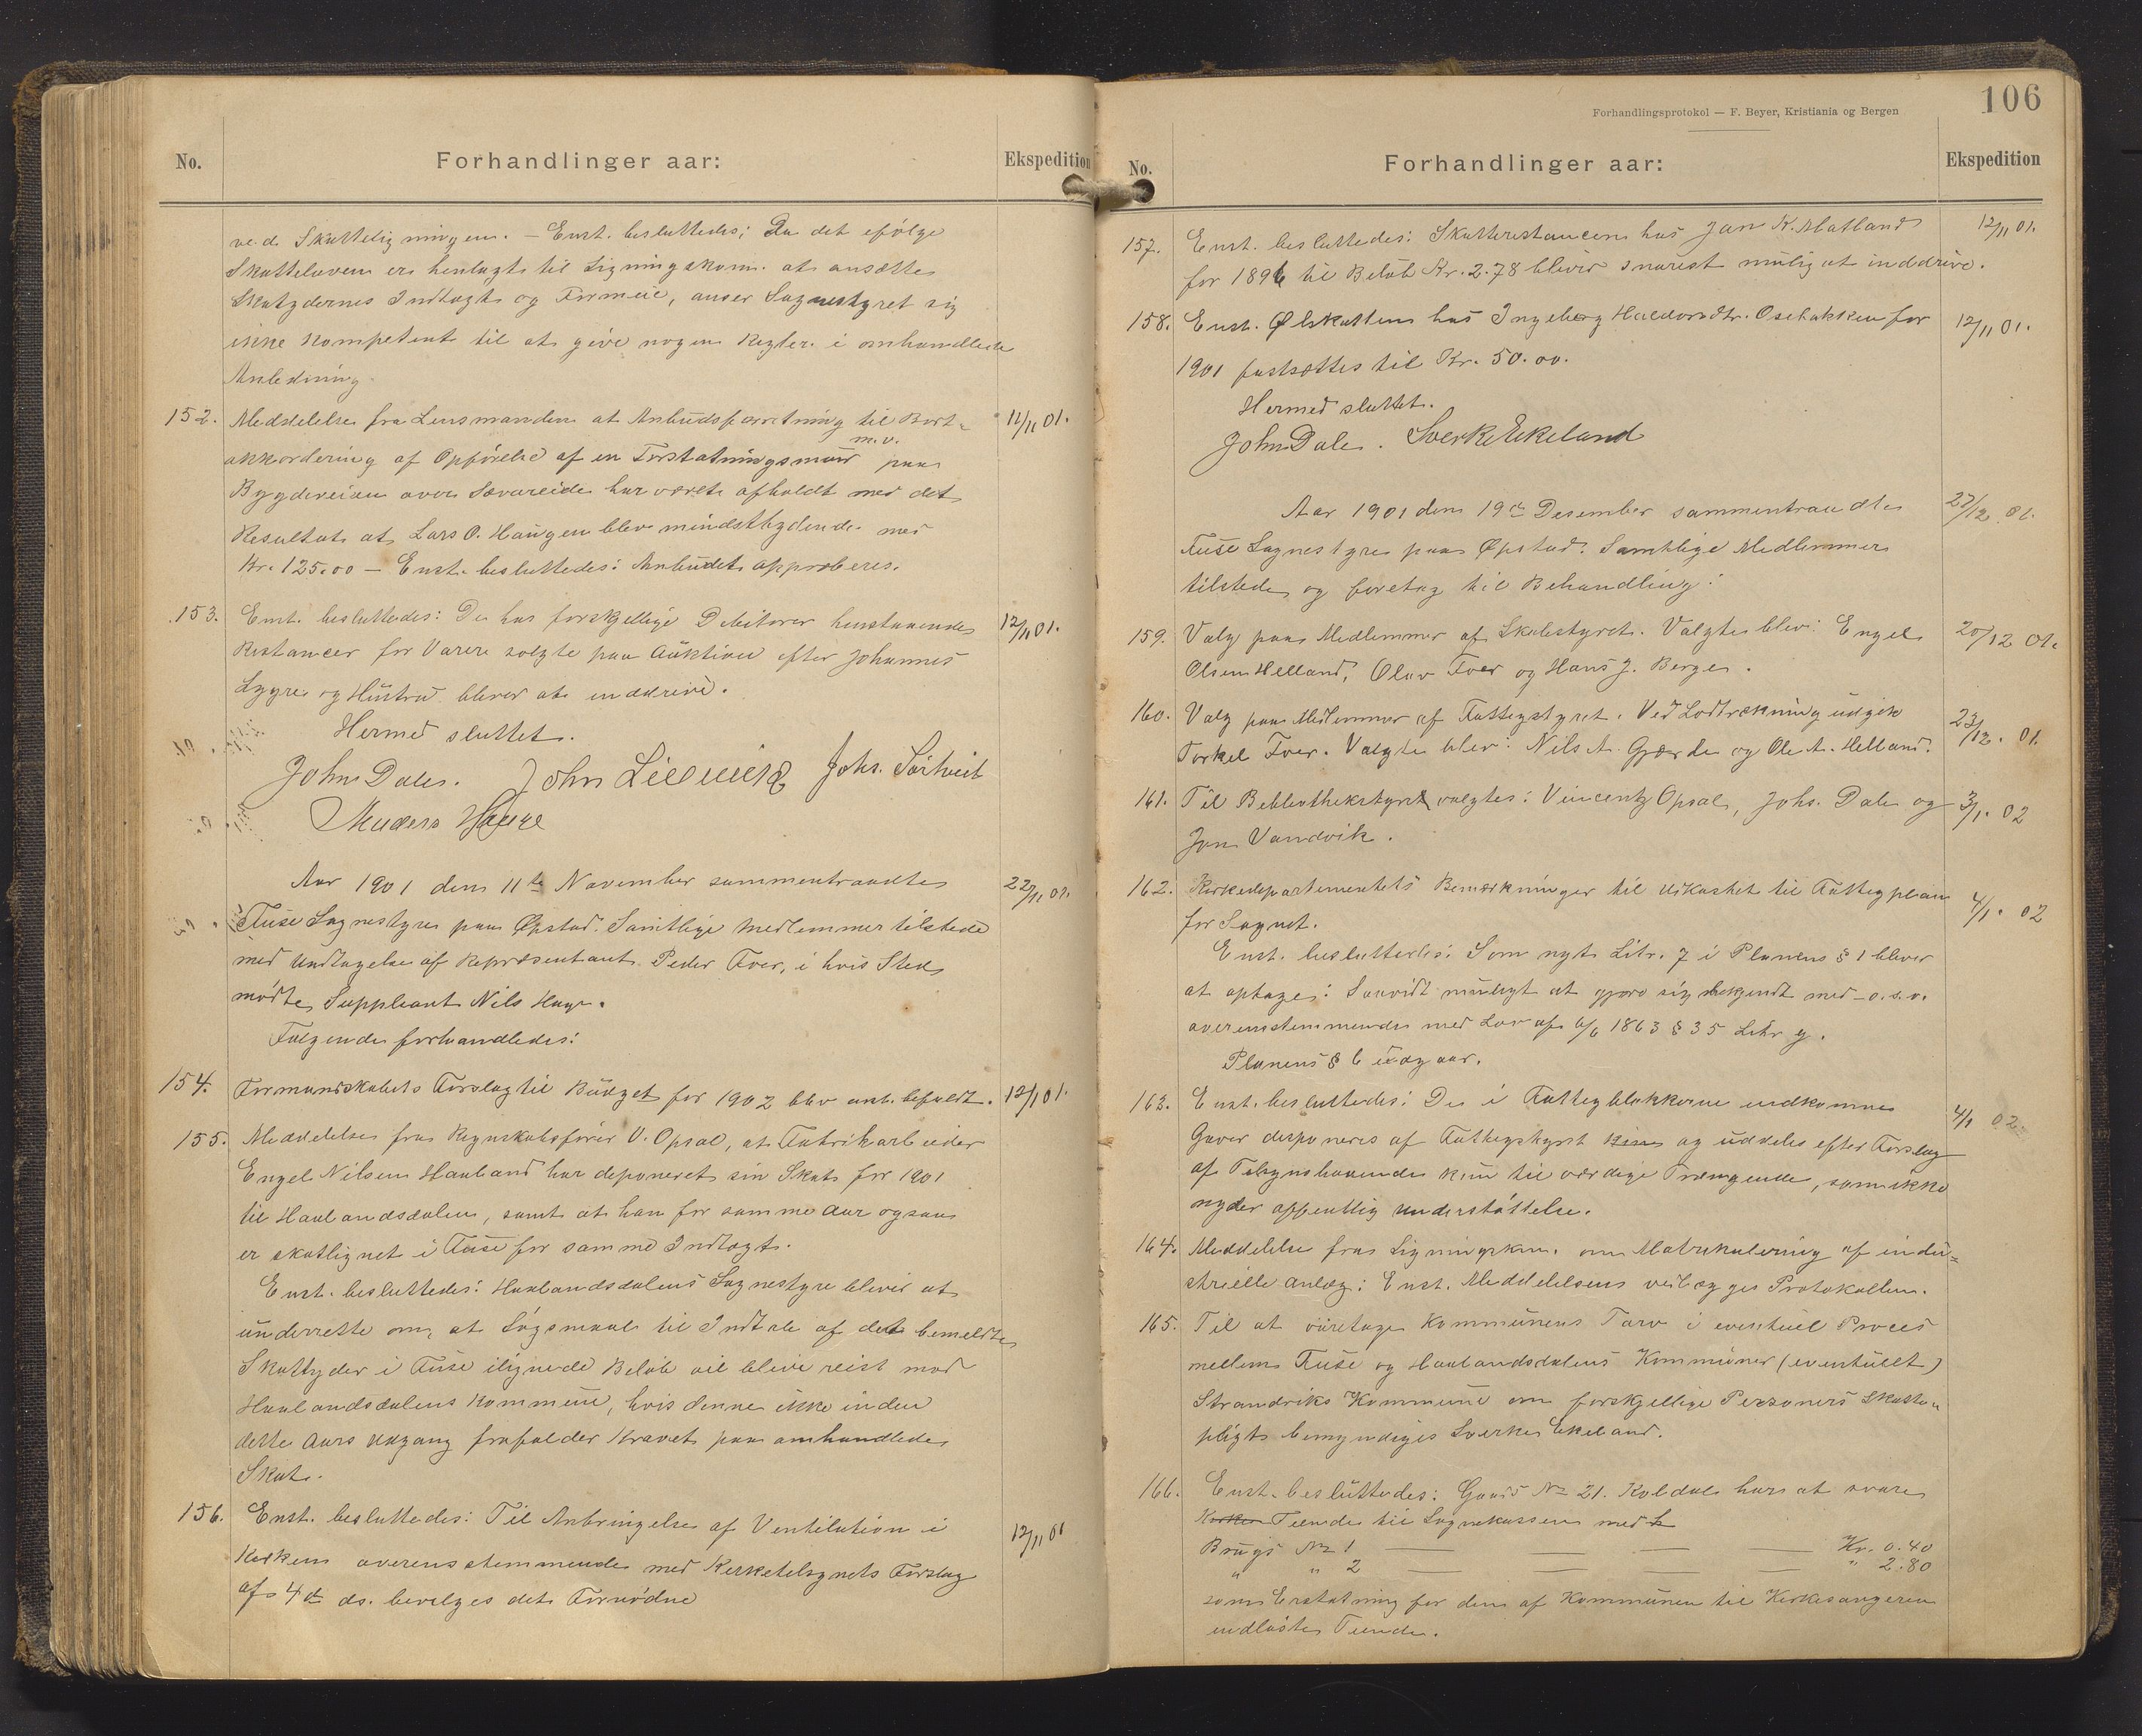 No.
Forhandlinger aar:
Ekspedition
ved Skatteligningen. – Enst. besluttedes: Da det ifølge
Skatteloven er henlagt til Ligningskom. at ansætte
Skatydernes Indtægt og Formue, anser Sognestyret sig
ikke kompetent til at give nogen Regler i omhandlede
Anledning.
152. Meddelelse fra Lensmanden at Anbudsforretning til Bort- 11/11 01.
akkordering af Opførelse af en Forstøtningsmur m.v. paa
Bygdeveien over Sævareide har været afholdt med det
Resultat at Lars O. Haugen blev mindstbydende med
Kr. 125.00 – Enst. besluttedes: Anbudet approberes.
153. Enst. besluttedes: De hos forskjellige Debitorer henstaaende 12/11 01.
Restancer for Varer solgte paa Auktion efter Johannes
Lygre og Hustru bliver at inddrive.
Hermed sluttet.
John Dale. John Johs. Sørtveit
Anders Hauge
Aar 1901 den 11te November sammentraadte 22/11 01.
Fuse Sognestyre paa Øpstad. Samtlige Medlemmer tilstede
med Undtagelse af Repræsentant Peder Tver, i hvis Sted
mødte Suppleant Nils Hage.
Følgende forhandledes:
154. Formandskabets Forslag til Budget for 1902 blev enst. bifaldt. 12/11 01.
155. Meddelelse fra Regnskabsfører V. Opsal, at Fabrikarbeider
Engel Nilsen Hauland har deponeret sin Skat for 1901
til Haalandsdalen, samt at han for samme Aar ogsaa
er skatlignet i Fuse for samme Indtægt.
Enst. besluttedes: Haalandsdalens Sognestyre bliver at
underrette om, at Søgsmaal til Indtale af det bemeldte
Skatteyder i Fuse ilignede Beløb vil blive reist mod
Haalandsdalens Kommune, hvis denne ikke inden
dette Aars Udgang frafalder Kravet paa omhandlede
Skat.
156. Enst. besluttedes: Til Anbringelse af Ventilation i 12/11 01
Kirken overensstemmende med Kirketilsynets Forslag
af 4de ds. bevilges det Fornødne
Forhandlingsprotokol — F. Beyer, Kristiania og Bergen
106
No.
Forhandlinger aar:
Ekspedition
157. Enst. besluttedes: Skatterestancen hos Jan K. Matland 12/11 01.
for 1896 til Beløb Kr. 2.78 bliver snarest mulig at inddrive.
158. Enst. Ølskatten hos Ingeborg Haldorsdtr. Osebakken for 12/11 01.
1901 fastsættes til Kr. 50.00.
Hermed sluttet.
John Dale. Sverke Ekeland
Aar 1901 den 19de Desember sammentraadte 27/12 01.
Fuse Sognestyre paa Øpstad. Samtlige Medlemmer
tilstede og foretog til Behandling:
159. Valg paa Medlemmer af Skolestyret. Valgte blev: Engel 20/12 01.
Olsen Helland, Olav Tver og Hans J. Berge.
160. Valg paa Medlemmer af Fattigstyret. Ved Lodtrækning udgik 23/12. 01.
Torkel Tver. Valgte blev: Nils A. Gjærde og Ole A. Helland.
161. Til Bibliothekstyret valgtes: Vincentz Opsal, Johs. Dale og 3/1. 02
Jon Vandvik.
162. Kirkedepartementets Bemærkninger til Udkastet til Fattigplan 4/1. 02
for Sognet.
Enst. besluttedes: Som nyt Litr. 7 i Planens § 1 bliver
at optage: Saavidt muligt at gjøre sig bekjendt med – o.s.v.
overensstemmende med Lov af 6/6 1863 § 35 Litr g.
Planens § 6 udgaar.
163. Enst. besluttedes: De i Fattigblokkerne indkomne 4/1 02.
Gaver disponeres af Fattigstyret og uddeles efter Forslag
af Tilsynshavende kun til værdige Trængende, som ikke
nyder offentlig Understøttelse.
164. Meddelelse fra Ligningskm. om Matrikulering af indu-
strielle Anlæg: Enst. Meddelelsens vedlægges Protokollen.
165. Til at varetage Kommunens Tarv i eventuel Proces
mellem Fuse og Haalandsdalens Kommuner (eventuelt)
Strandviks Kommune om forskjellige Personers Skatte-
pligt bemyndiges Sverke Ekeland.
166. Enst. besluttedes: Gaard No 21. Koldal har at svare
Tiende til Sognekassen med
Brugs No 1 — — — — Kr. 0.40
" " 2 — — — — " 2.80
som Erstatning for den af Kommunen til Kirkesangeren
indløste Tiende.